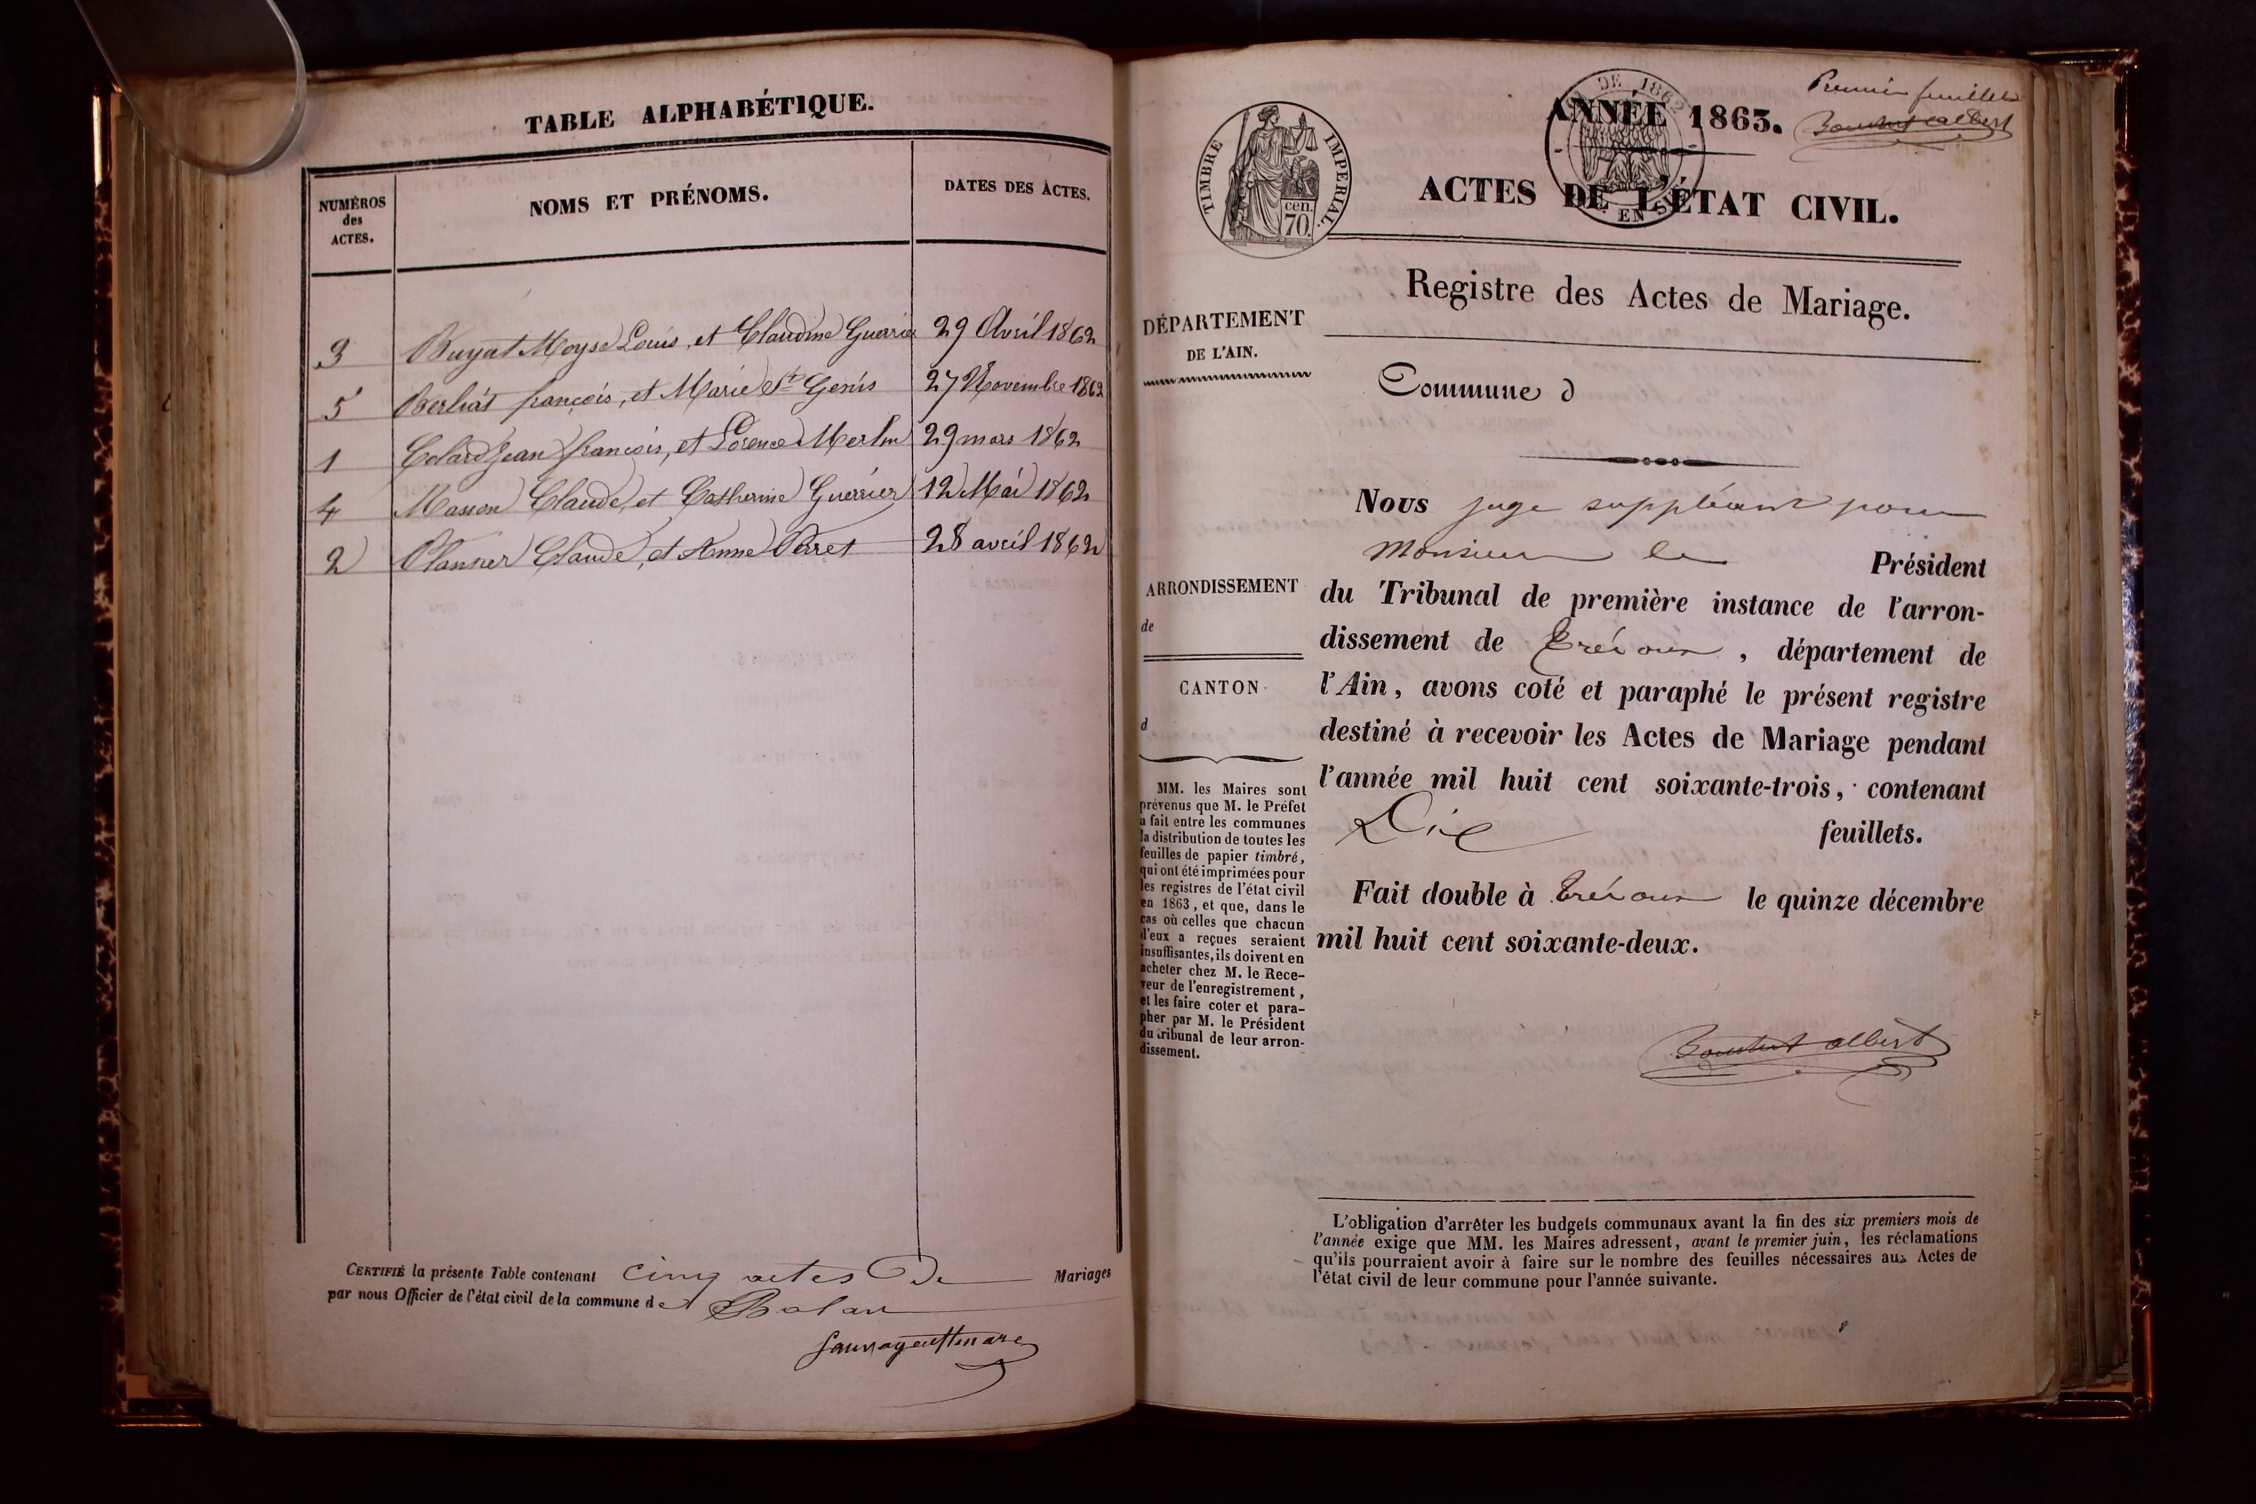 TABLE ALPHABÉTIQUE.
NUMÉROS des ACTES.
NOMS ET PRÉNOMS.
DATES DES ACTES.
3 Buyat Moyse Louis, et Claudine Guerrier 29 Avril 1862
5 Berliat françois, et Marie St Genis 27 Novembre 1862
1 Colard Jean françois, et Merlin 29 mars 1862
4 Masson Claude, et Catherine Guerrier 12 Mai 1862
2 Claude, et Anne Perret 28 avril 1862
CERTIFIÉ la présente Table contenant cinq actes De Mariages
par nous Officier de l'état civil de la commune de Balan
Premier feuillet
ANNÉE 1863.
TIMBRE IMPERIAL.
cen.
70.
DE 1862
EN S
ACTES DE L'ÉTAT CIVIL.
Registre des Actes de Mariage.
DÉPARTEMENT
DE L'AIN.
Commune d
ARRONDISSEMENT
de
CANTON
d
MM. les Maires sont
prévenus que M. le Préfet
a fait entre les communes
la distribution de toutes les
feuilles de papier timbré,
qui ont été imprimées pour
les registres de l'état civil
en 1863, et que, dans le
cas où celles que chacun
d'eux a reçues seraient
insuffisantes, ils doivent en
acheter chez M. le Rece-
veur de l'enregistrement,
et les faire coter et para-
pher par M. le Président
du tribunal de leur arron-
dissement.
Nous juge suppléant pour
Monsieur le Président
du Tribunal de première instance de l'arron-
dissement de Trévoux, département de
l'Ain, avons coté et paraphé le présent registre
destiné à recevoir les Actes de Mariage pendant
l'année mil huit cent soixante-trois, contenant
Dix feuillets.
Fait double à Trévoux le quinze décembre
mil huit cent soixante-deux.
albert
L'obligation d'arrêter les budgets communaux avant la fin des six premiers mois de
l'année exige que MM. les Maires adressent, avant le premier juin, les réclamations
qu'ils pourraient avoir à faire sur le nombre des feuilles nécessaires aux Actes de
l'état civil de leur commune pour l'année suivante.